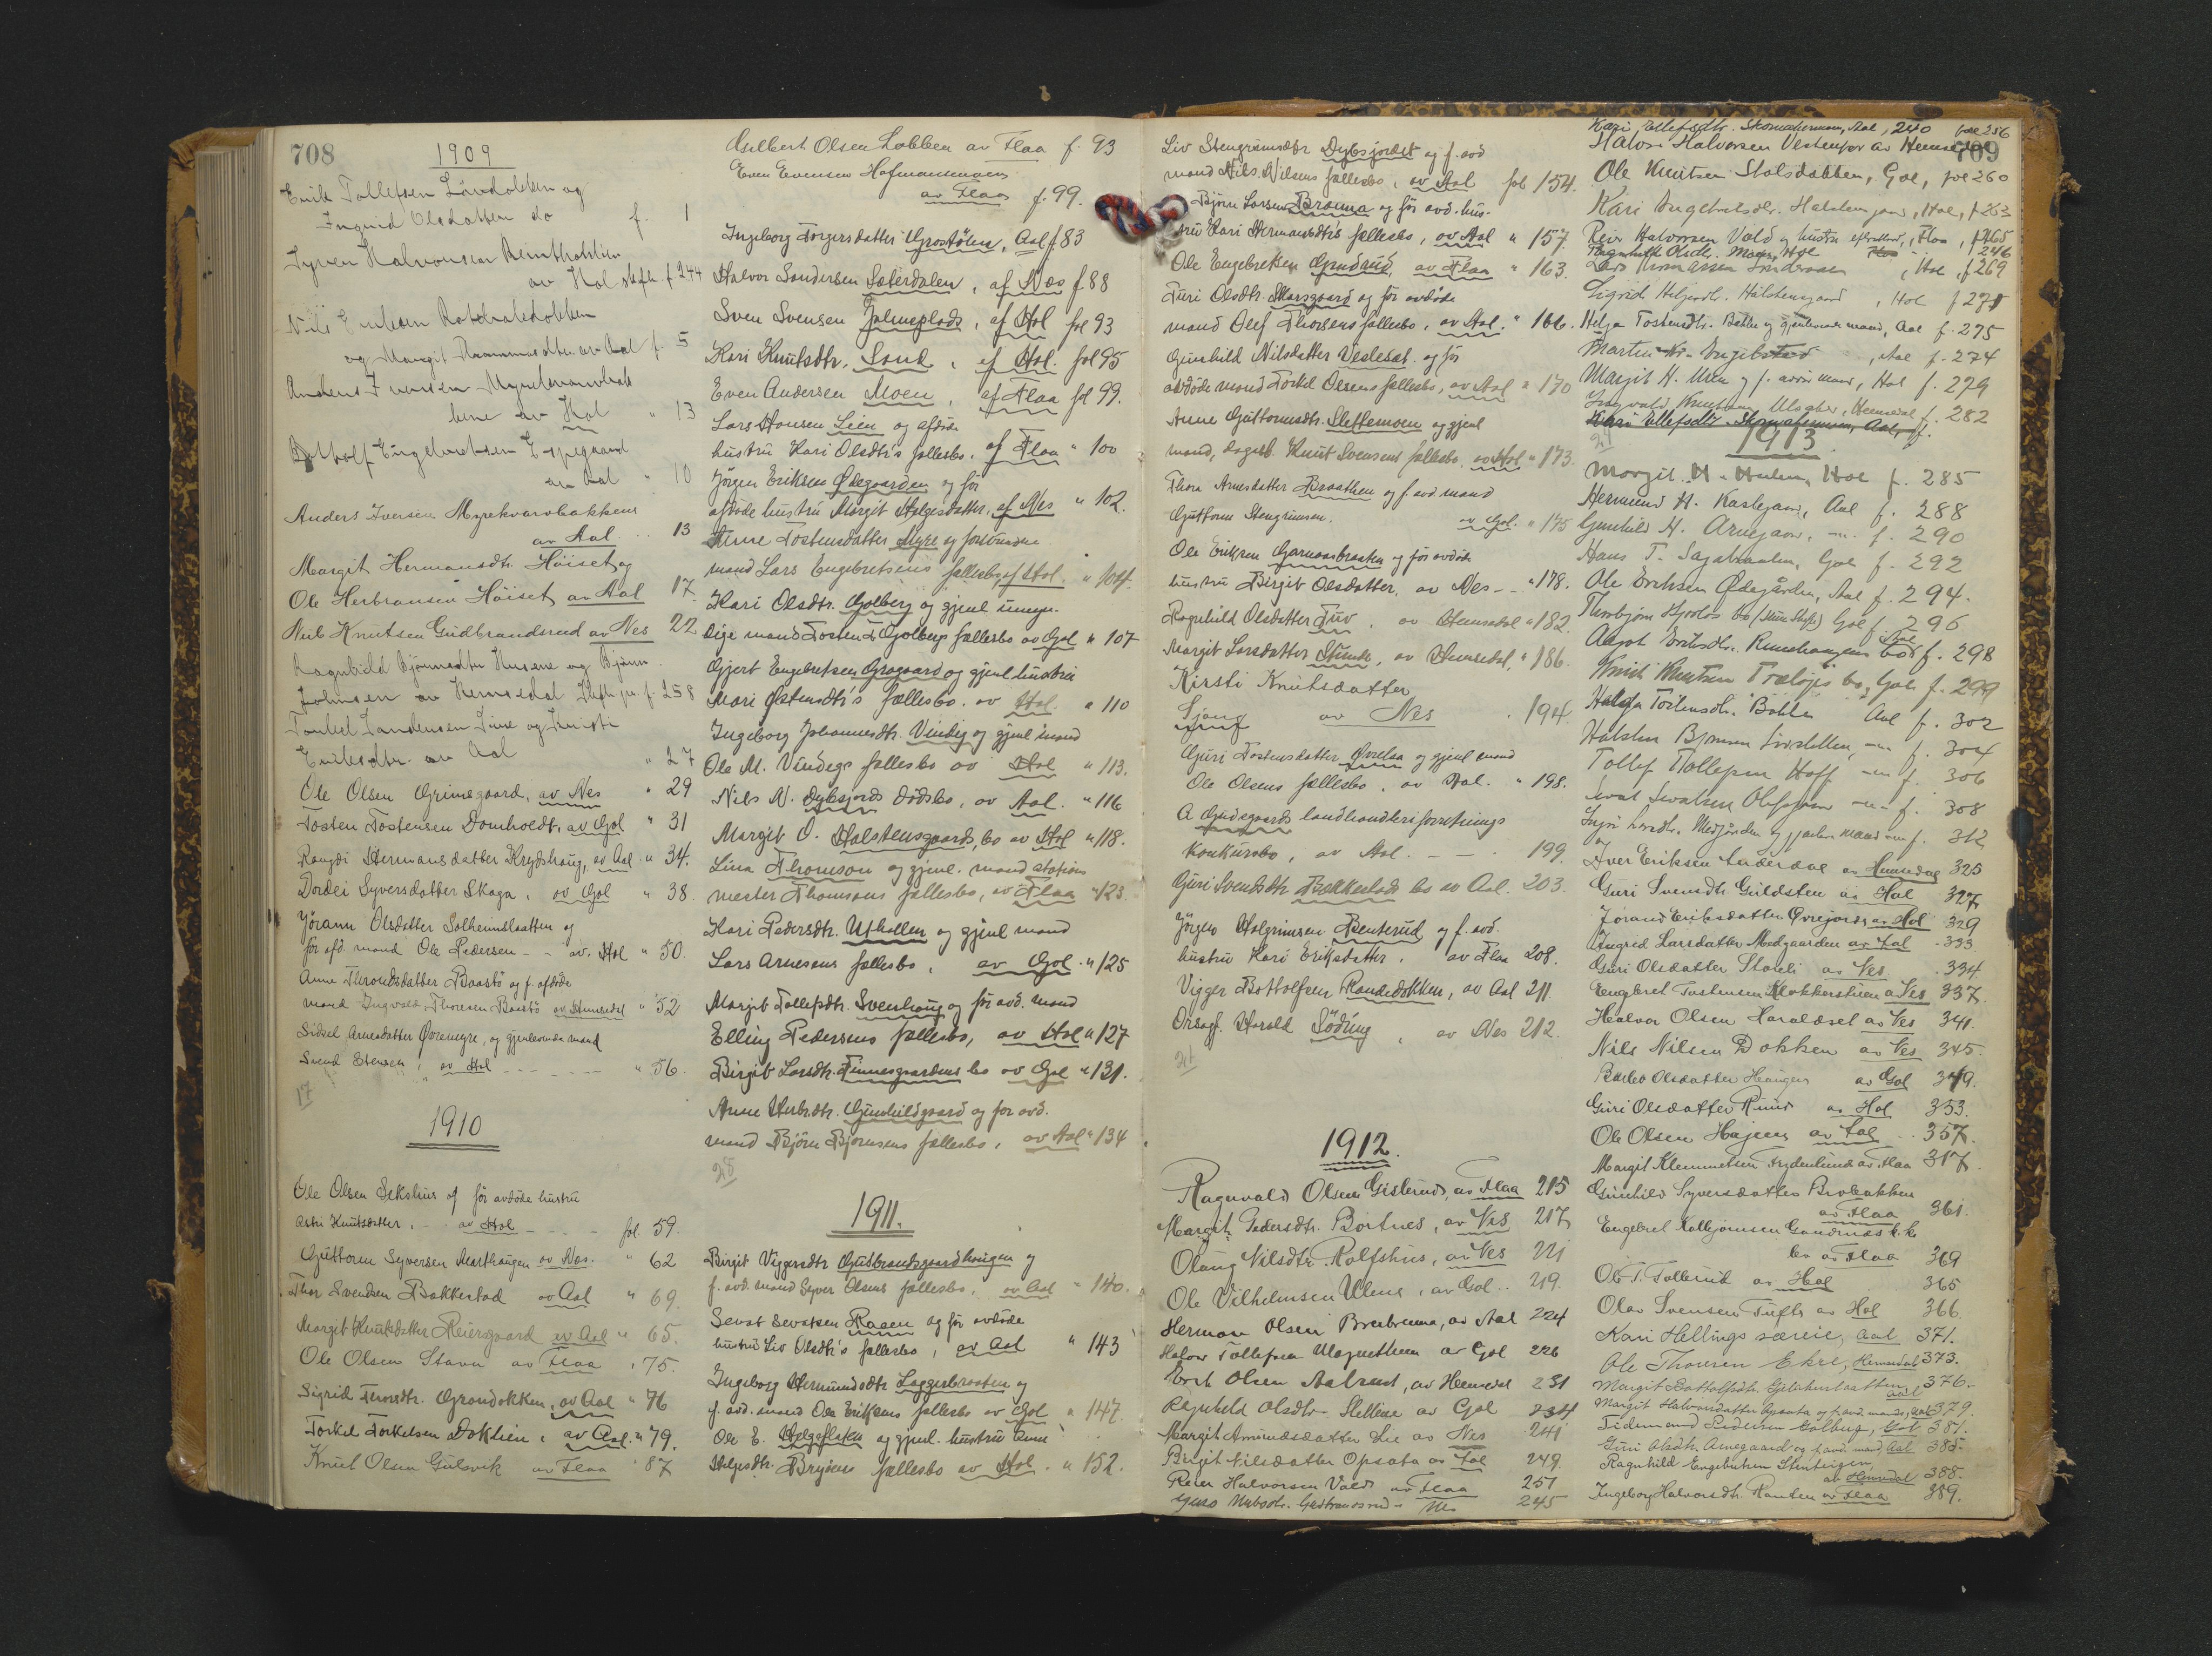 708
1909
Erik Tollefsen Lördokken og
Ingrid Olsdatter do f. 1
Syver Halvorsen
av Hol skifte f 244
Nils Eriksen
og Margit av Aal f. 5
Anders Iversen
av Hol " 13
Botholf Engebretsen Espegaard
av Aal " 10
Anders Iversen Myrehvarvbakkene
av Aal .. 13
Margit Hermansdtr. Höiset og
Ole Herbransen Höiset av Aal 17
Neub Knutsen Gudbrandsrud av Nes 22
Ragnhild og Björn
Johnsen av Hemsedal f. 258
Torkel Sandersen og Kristi
Eriksdtr. av Aal " 27
Ole Olsen Grimsgaard, av Nes " 29
Tosten Tostensen Domholdt, av Gol " 31
Rangdi Hermansdatter Hrydshaug, av Aal " 34.
Dordei Syversdatter Skaga, av Gol " 38.
Jörann Olsdatter Solheimslaatten og
för afd. mand Ole Pedersen - - av Hol " 50.
Anne Throndsdatter Baastö og f. afdöde
mand Ingvald Thoresen Baastö av Hemsedal " 52
Sidsel Arnesdatter Övremyre, og gjenlevende mand
Svend Stensen, av Hol - - - " 56.
17
1910
Ole Olsen Sekshus og för avdöde hustru
Astri Knutsdatter, - av Hol - - - fol. 59.
Guttorm Syversen Marthaugen av Nes. " 62
Thor Svendsen Bakkestad av Aal " 69.
Margit Knutsdatter Reiersgaard av Aal " 65.
Ole Olsen Stavn av Flaa " 75.
Sigrid Torsdtr. Grondokken, av Aal " 76
Torkel Torkelsen Doklien, av Aal. " 79.
Knut Olsen Gulsvik av Flaa " 87
Aslbert Olsen Lobben av Flaa f. 93
Even Evensen Hofmansmoen
av Flaa f. 99.
Ingeborg Torgersdatter Grostölen, Aal f 83
Halvor Sandersen Sæterdalen, af Næs f 88
Sven Svensen Jalmeplads, af Hol fol 93
Kari Knutsdtr. Sand, af Hol. fol 95
Even Andersen Moen, af Flaa fol 99.
Lars Hansen Lien og afdöde
hustru Kari Olsdtr's fællesbo. af Flaa " 100
Jörgen Eriksen Ødegaarden og för
afdöde hustru Margit Helgesdatter, af Nes " 102.
Anne Tostensdatter Myre og forsvundne
mand Lars Engebretsens fællesbo af Hol. " 104.
Kari Olsdtr. Golberg og gjenl. umyn-
dige mand Tosten T. Golbergs fællesbo av Gol " 107
Gjert Engebretsen Grogaard og gjenl. hustru
Mari Østensdtr's fællesbo. av Hol. " 110
Ingeborg Johannesdtr. Vindeg og gjenl. mand
Ole M. Vindegs fællesbo av Hol " 113.
Nils N. Dybsjords dödsbo, av Aal. " 116
Margit O. Holstensgaards, bo av Hol " 118.
Lina Thomson og gjenl. mand stations
mester Thomsons fællesbo, av Flaa " 123.
Kari Pedersdtr. Uthallen og gjenl mand
Lars Arnesens fællesbo, av Gol. " 125
Margit Tollefsdtr. Svenhaug og för avd. mand
Elling Pedersens fællesbo, av Hol " 127
Birgit Larsdtr. Finnesgaardens bo av Gol " 131.
Anne Herbr.dtr. Gunhildgaard og for avd.
mand Björn Bjornsens fællesbo, av Aal " 134
28
1911.
Birgit Viggersdtr Gulbrandsgaardhaugen og
f. avd. mand Syver Olsens fællesbo, av Aal " 140.
Sevat Sevatsen Raaen og för avdöde
hustru Liv Olsdtr's fællesbo, av Aal " 143
Ingeborg Hermundsdtr Laggerbraaten og
f. avd. mand Ole Eriksens fællesbo av Gol " 147.
Ole E. Helgeslaten og gjenl. hustru Anne
Helgesdtr. fællesbo av Hol. " 152.
Liv Stengrimsdtr Dybsjordet og f. avd
mand Nils Nilsens fællesbo, av Aal fol 154.
Björn Larsen Bräuna og för avd. hus-
tru Kari Hermansdtr's fællesbo, av Aal " 157.
Ole Engebretsen Grudrud, av Flaa " 163.
Turi Olsdtr. Skarsgaard og för avdöde
mand Olef Thorsens fællesbo, av Aal. " 166.
Gunhild Nilsdatter Veslesæt. og för
avdöde mand Torkel Olsens fællesbo, av Aal " 170
Anne Guttormsdtr. Slettemoen og gjenl
mand, dagarb. Knut Svensens fællesbo, av Hol " 173.
Thora Arnesdatter Braathen og f. avd. mand
Guttorm Stengrimsen. av Gol. " 175
Ole Eriksen Garnaasbraaten og för avdöde
hustru Birgit Olsdatter, av Nes - - " 178.
Ragnhild Olsdatter Tuv, av Hemsedal " 182.
Margit Larsdatter Stunde, av Hemsedal, " 186.
Kirsti Knutsdatter
Sjong av Nes . 194.
Guri Tostensdatter Øvrelaa og gjenl mand
Ole Olsens fællesbo, av Hol. " 198.
A Gudsgaards landhandleriforretnings
konkursbo, av Aal. - - 199.
Guri Svendsdtr Bakkestads bo av Aal. 203.
Jörgen Halgrimsen Benterud og f. avd.
hustru Kari Eriksdatter. av Flaa 208.
Vigger Botholfsen Randedokken, av Aal 211.
Orsagf. Harald Söding, av Nes 212.
24
1912.
Ragnvald Olsen Gislerud, av Flaa 215
Margit Pedersdtr. Bortnes, av Nes 217
Olaug Nilsdtr. Rolfshus, av Nes 221
Ole Vilhelmsen Ulens, av Gol .. 219.
Herman Olsen Breibrenna, av Aal 224
Halvor Tollefsen Magnethun av Gol 226
Erik Olsen Aalrust, av Hemsedal 231
Ragnhild Olsdtr Slettene av Gol 234
Margit Amundsdatter Lie av Nes 241
Birgit Nilsdatter Opsata av Aal 249.
Reier Halvorsen Vald av Flaa 251
Guro Gudbrandsrud - Nes 245
Kari Ellefsdtr. Skomakermoen, Aal, 240 fol 256
Halvor Halvorsen Vestenfor av Hemsedal
709
Ole Knutsen Stolsdokken, Gol, fol 260
Kari Engebretsdtr. Halstensgaard, Hol, f 263
Reier Halvorsen Vald og hustru efterladt, Flaa, f 265
Ragnhild Olsdtr. Hol 246
Lars Thomassen Sundraaen, Hol, f 269
Sigrid Helgesdtr. Halstensgaard, Hol f 271
Helga Tostensdtr. Bakke og gjenlevende mand, Aal f. 275
Martin Kr. Engelstad, Aal f. 274
Margit H. Uren og f. avdöde mand, Hol f. 279
Ingvald Knutsen Ulsaker, Hemsedal f. 282
Kari Ellefsdtr Skomakermoen, Aal, f.
1913
Margit H. Hol f. 285
Hermund H. Karlsgaard, Aal f. 288
Gunhild H. Arnegaard, -"- f. 290
Hans T. Sagabraaten, Gol f. 292
Ole Eriksen Ødegården, Aal f. 294.
Thorbjörn Hjorlos bo Gol f. 296
Aagot Eriksdtr. Runehaugens bo Aal f. 298
Knut Knutsen Trælöjes bo, Gol f. 299
Helga Tostensdtr. Bakke Aal f. 302
Halsten Björnsen -"- f. 304
Tollef Tollefsen Hoff -"- f. 306
Sevat Sevatsen -"- f. 308
Medgården og gjenlev. mand -"- f. 312
Iver Eriksen av Hemsedal 325
Guri Svensdtr. Guldsten av Hol 327
Jorand Eriksdatter Øvrejorde av Hol 329
Ingrid Larsdatter Medgaarden av Aal 333
Guri Olsdatter Staveli av Nes 334
Engebret Tostensen Klokkerstuen av Nes 337.
Halvor Olsen Haraldset av Nes 341.
Nils Nilsen Dokken av Nes 345.
Barbro Olsdatter Haugen av Gol 349.
Guri Olsdatter Ruud av Hol 353.
Ole Olsen Hagen av Aal .. 357.
Margit Klemmetsen Frydenlund av Flaa 317
Gunhild Syversdatter Brobakken
av Flaa 361.
Engebret Kolbjörnsen Gandrud s. k.
bo av Flaa 369
Ole T. Tollerud av Hol 365
Olav Svensen Tufte av Hol 366
Kari Hellings særeie, Aal 371.
Ole Thoresen Ekre, Hemsedal 373.
Margit Bottolfsdtr. Aal 376.
Margit Halvorsdatter Opsata og f. avd. mand, Aal 379.
Tidemand Pedersen Golberg, Gol 381.
Guri Olsdtr. Arnegaard og f. avd. mand Aal 385.
Ragnhild Engebretsen
av Hemsedal 388.
Ingeborg Halvorsdtr. Rauden av Flaa 389.